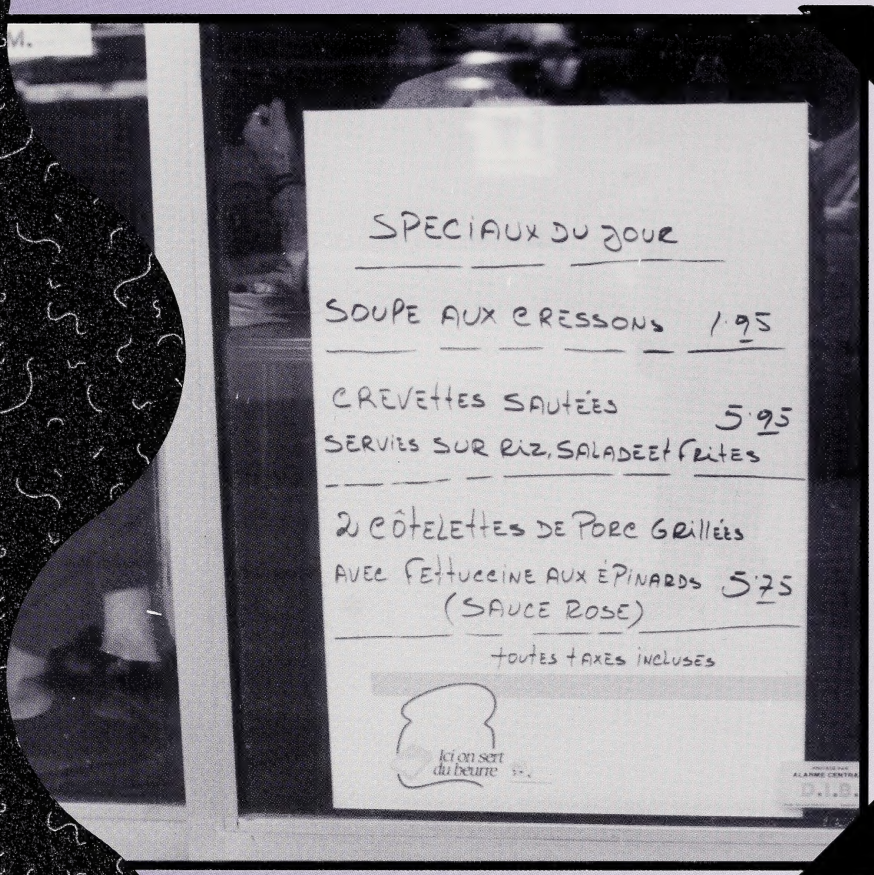 M.
SPECIAUX DU JOUR
SOUPE AUX CRESSONS 1.95
CREVETTES SAUTÉES 5.95
SERVIES SUR RIZ, SALADE ET FRITES
2 CÔTELETTES DE PORC GRILLÉES
AVEC FETTUCCINE AUX ÉPINARDS 5.75
(SAUCE ROSE)
TOUTES TAXES INCLUSES
Ici on sert
du beurre
PROTÉGÉ PAR
ALARME CENTRA
D.I.B.